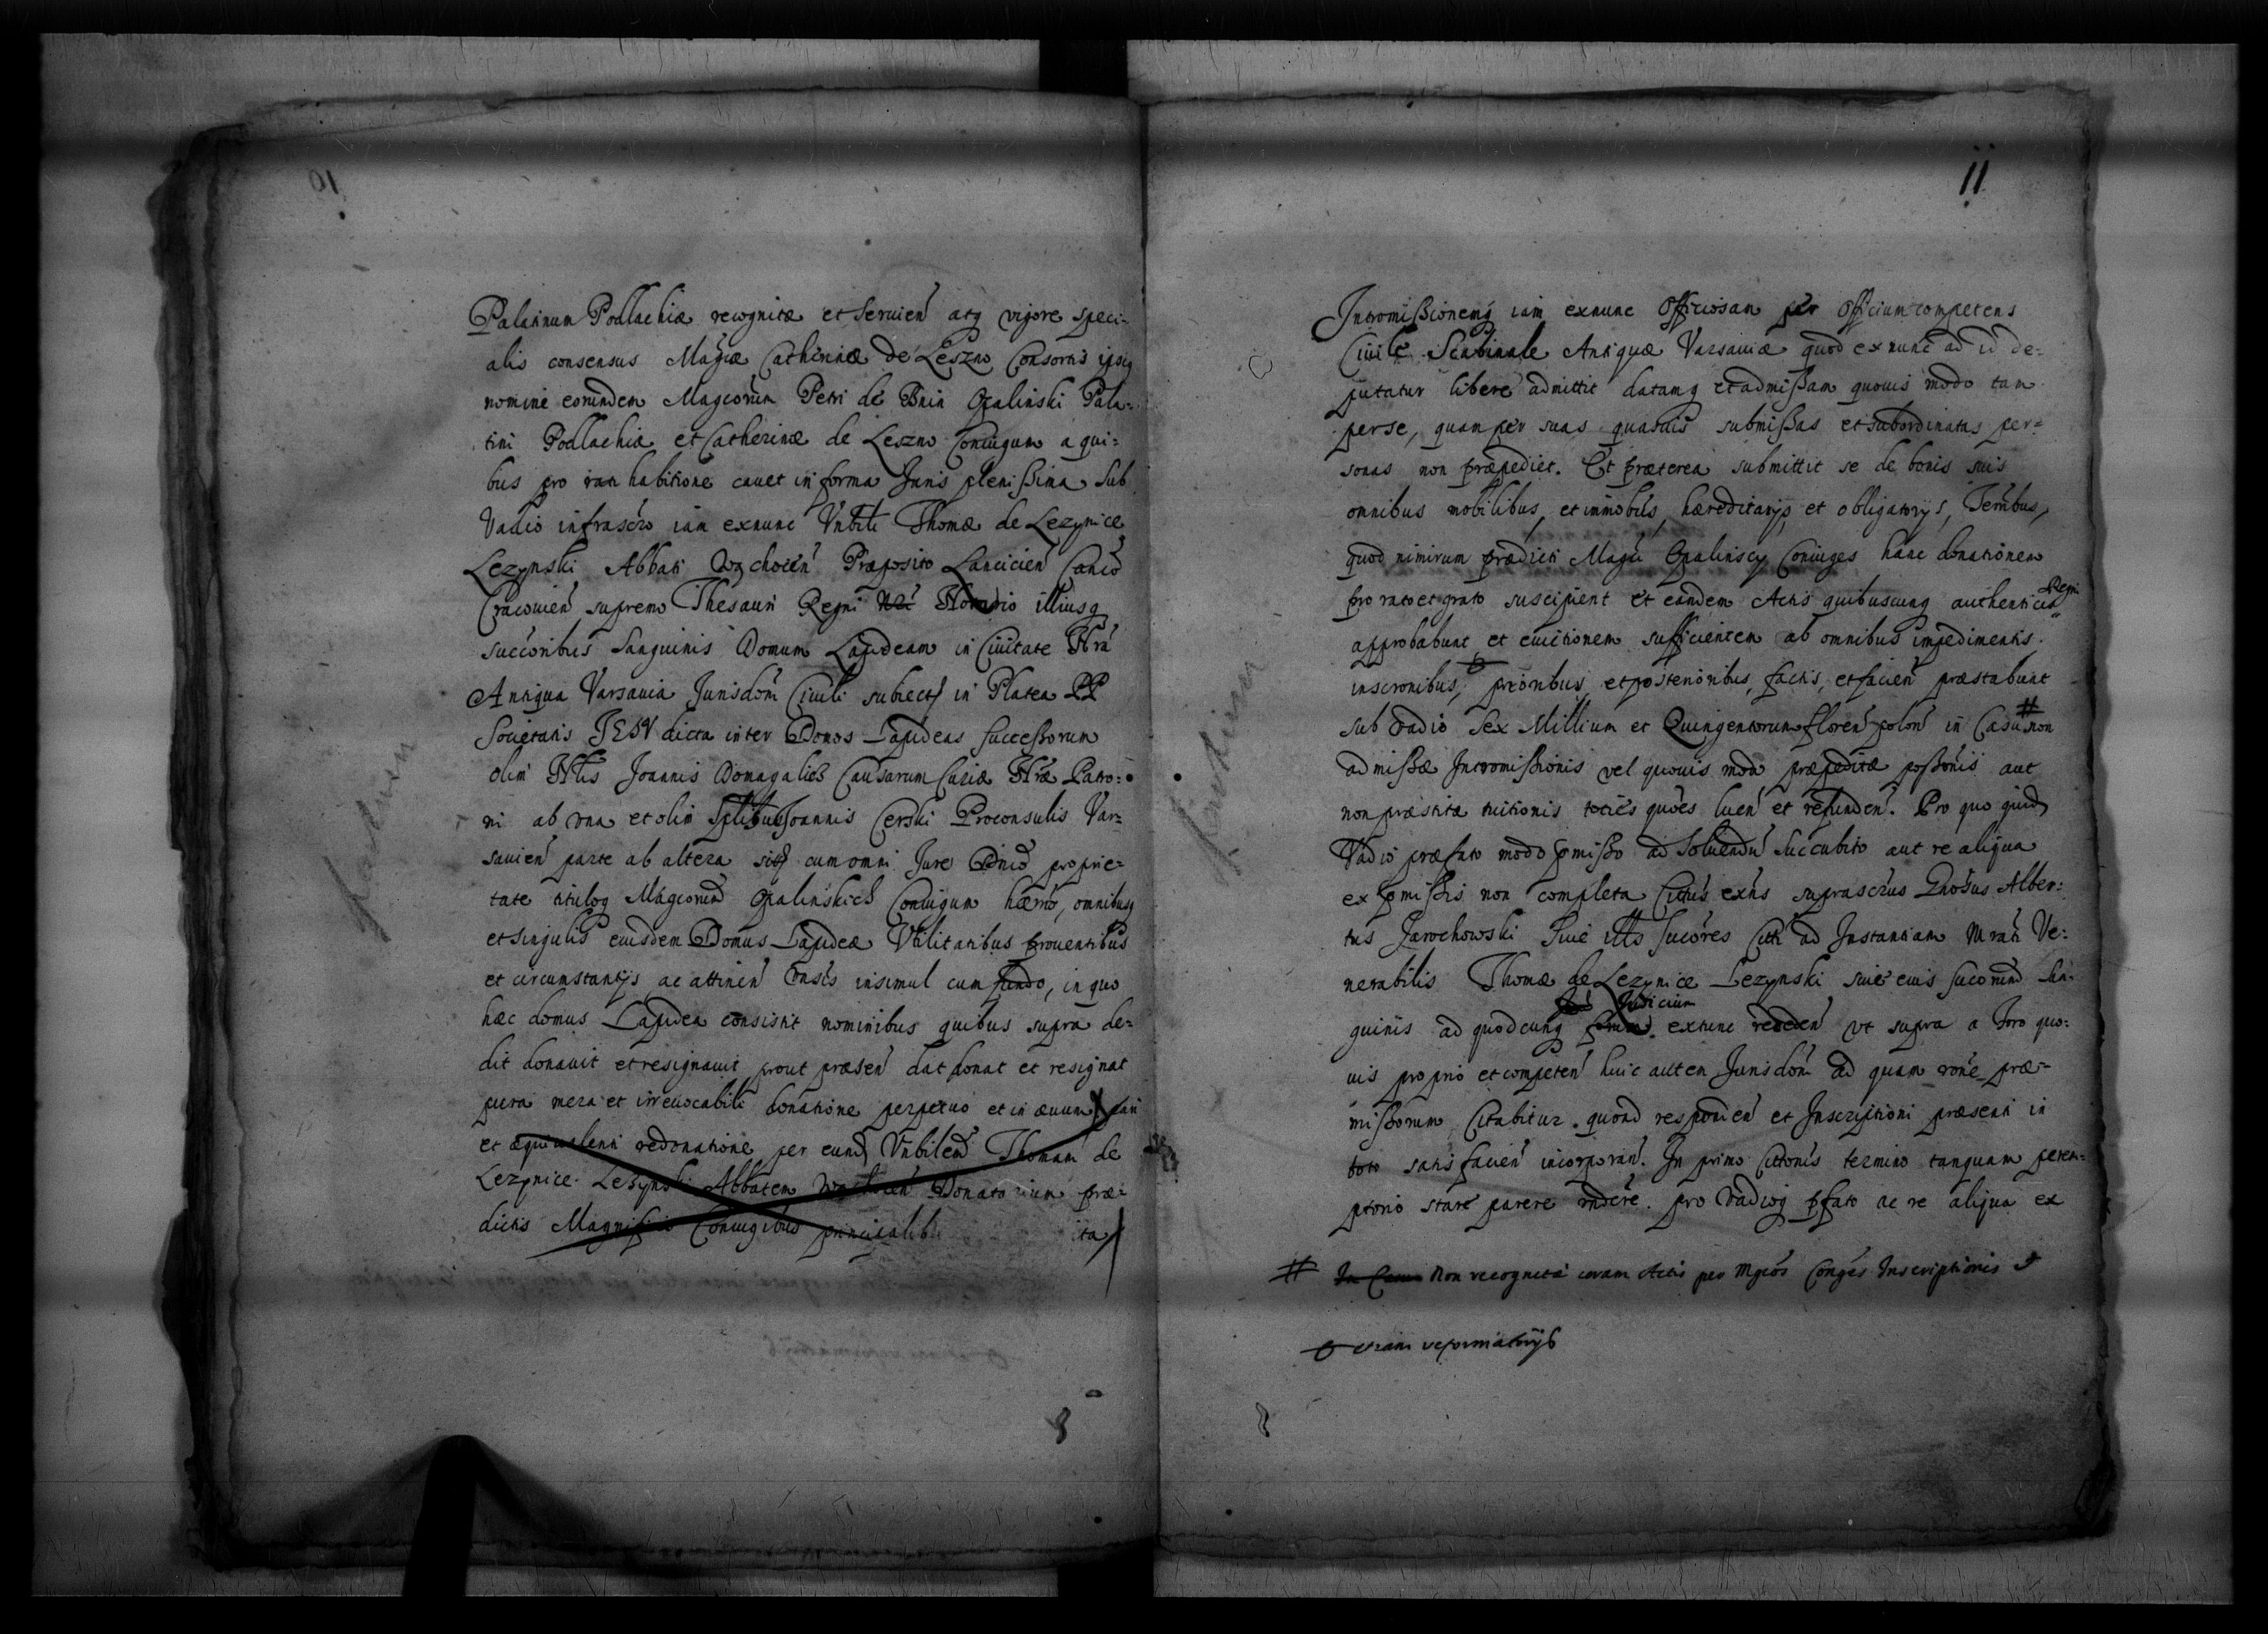 Palatinum Podlachiæ recognitæ et seruien̄ atq vigore speci-
alis consensus Magcæ Cathérinæ de Leszno Consortis ipsiq
nomine eorundem Magcorum Petri de Bnin Opalinski Pala-
tini Podlachiæ et Catherinæ de Leszno Coniugum a qui-
bus pro rati habitione cauet in forma Juris plenissima sub
Vadio infrascr̄o iam exnunc Vnbili Thomæ de Lezenice
Lezynski Abbati Wąchocien̄ Præposito Lancicien̄ Canco
Cracouien̄ supremo Thesauri Regni Notario illiusq
succoribus sanguinis Domum Lapideam in Ciuitate Nrā
Antiqua Varsauia Jurisdom̄ Ciuili subiectā in Platea PP
Societatis JESV dicta inter Domos Lapideas successorum
olim Nblis Joannis Domagalicz Causarum Curiæ Nræ Patro-
ni ab vna et olim Spblibus Joannis Cerski Proconsulis Var-
sauien̄ parte ab altera sitā cum omni Jure Dn̄io proprie-
tate tituloq Magcorum Opalinskich Coniugum hærio, omnibusq
et singulis eiusdem Domus Lapideæ Vtilitatibus prouentibus
et circumstantijs ac attinen̄ vnsis insimul cum fundo, in quo
hæc domus Lapidea consistit nominibus quibus supra de-
dit donauit et resignauit prout præsen̄ dat donat et resignat
pura mera et irreuocabili donatione perpetuo et in æuum pari
et æquiualenti redonatione per eund Vnbilem Thomam de
Lezynice Lezynski Abbatem Wąchocen̄ Donatorium præ-
dictis Magnificis Coniugibus principalib
ita
11
Intromissionemq iam exnunc Officiosam per Officium competens
Ciuile Scabinale Antiquæ Varsauiæ quod exnunc ad id de-
putatur libere admittit datamq et admissam quouis modo tam
perse, quam per suas quasuis submissas et subordinatas per-
sonas non præpediet. Et præterea submittit se de bonis suis
omnibus mobilibus, et immobils, hæreditarijs et obligatorijs,
quod nimirum prædicti Magci Opalinscy Coniuges hanc donationem
pro rato et grato suscipient et eandem Actis quibuscunq authenticis Regni
approbabunt, et euictionem sufficientem ab omnibus impedimentis
inscronibus, prioribus, et posterioribus, factis, et facien̄ præstabunt
sub vadio Sex Millium et Quingentorum floren̄ polon̄ in Casu # non
admissæ Intromissionis vel quouis modo præpeditæ possonis aut
non præstitæ tuitionis toties quoties luen̄ et refunden̄. Pro quo quid
Vadio præfato modo pmisso ad soluendū succubito aut re aliqua
ex pmissis non completa Citus exn̄s suprascr̄us Gnosus Alber-
tus Jarochowski siue illis sucores Citi ad Instantiam mrati Ve-
nerabilis Thomæ de Lezynice Lezynski siue eius sucorum san-
guinis ad quodcunq Judicium extunc receden̄ vt supra a foro quo-
uis proprio et competen̄ huic autem Jurisdom̄ ad quam rone præ-
missorum Citabitur quoad responden̄ et Inscriptioni præsenti in
toto satisfacien̄ incorporan̄. In primo Citonis termino tanquam perem-
ptorio stare parere rndere. pro Vadioq pfato ac re aliqua ex
# In Casu Non recognitæ coram Actis per Mgcos Conges Inscriptionis
etiam reformatorijs